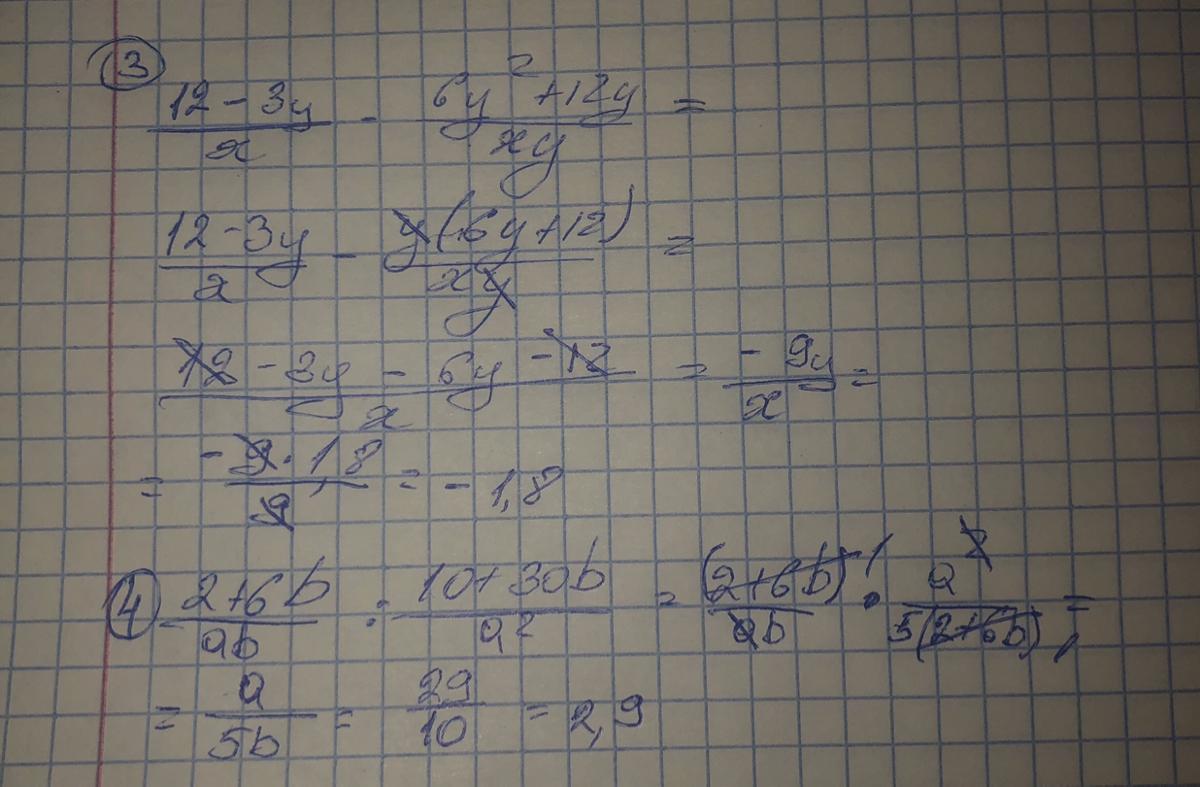 ③
(12 - 3y)/x - (6y² + 12y)/(xy) =
(12 - 3y)/x - y(6y + 12)/(xy) =
(12 - 3y - 6y - 12)/x = (- 9y)/x =
= (- 9 · 1,8)/9 = - 1,8
④ (2 + 6b)/(ab) : (10 + 30b)/a² = (2 + 6b)¹/(ab) · a²/(5(2 + 6b)₁) =
= a/(5b) = 29/10 = 2,9